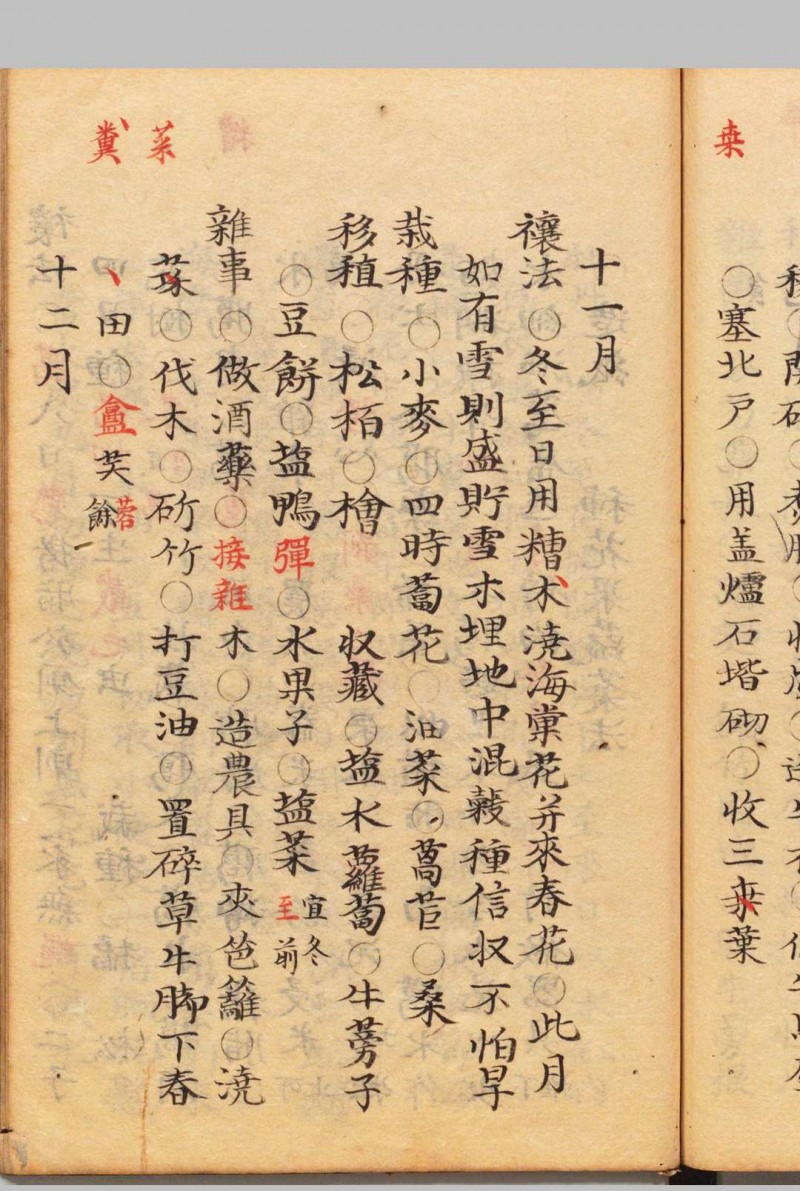 桒
〇塞北戸〇用盖爐石堦砌〇收三桒葉
十一月
禳法〇冬至日用糟水澆海棠花并來春花〇此月
如有雪則盛貯雪水埋地中混穀種信収不怕旱
栽種〇小麥〇四時蔔花〇油菜〇萵苣〇桑
移植〇松栢〇檜 収藏〇塩水蘿蔔〇牛蒡子
〇豆餅〇塩鴨彈〇水果子〇塩菜宜冬至前
雜事〇做酒藥〇接雜木〇造農具〇夾笆籬〇澆
菜
菜〇伐木〇斫竹〇打豆油〇置碎草牛脚下春
糞
田〇盦芙蓉餘
十二月